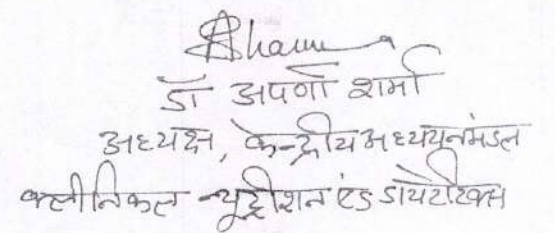 डॉ अपर्णा शर्मा
अध्यक्ष, केन्द्रीय अध्ययनमंडल
क्लीनिकल न्यूट्रीशन एंड डायटेटिक्स